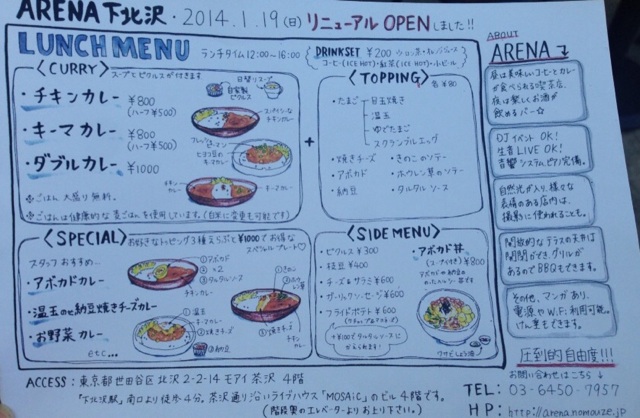 ARENA 下北沢・2014.1.19(日) リニューアル OPENしました!!
LUNCH MENU ランチタイム12:00〜16:00
DRINKSET ¥200
コーヒー(ICE HOT)・紅茶(ICE HOT)
<CURRY> スープとピクルスが付きます
・チキンカレー ¥800
(ハーフ¥500)
・キーマカレー ¥800
(ハーフ¥500)
・ダブルカレー ¥1000
ごはん大盛り無料。
ごはんは健康的な麦ごはんを使用しています。(白米に変更も可能です)
日替りスープ
自家製
ピクルス
チキンカレー
キーマカレー
チキンカレー
キーマカレー
+
<TOPPING> 各¥80
・たまご
目玉焼き
温玉
ゆでたまご
スクランブルエッグ
・焼きチーズ ・きのこのソテー
・アボカド ・ホウレン草のソテー
・納豆 ・タルタルソース
<SPECIAL> お好きなトッピング3種えらぶと¥1000でお得な
スペシャルプレート♡
スタッフおすすめ…
・アボカドカレー
・温玉のせ納豆焼きチーズカレー
・お野菜カレー
etc…
①アボカド
②×2
③タルタルソース
チキンカレー
①温玉
キーマカレー
②焼きチーズ
③納豆
<SIDE MENU>
・ピクルス ¥300
・枝豆 ¥400
・チーズ&サラミ ¥600
・ガーリックソーセージ ¥600
・フライドポテト ¥600
+¥100でタルタルソース
・アボカド丼
(スープ付き) ¥800
ワサビしょう油
ABOUT
ARENA
昼は美味しいコーヒーとカレー
が食べられる喫茶店、
夜は楽しくお酒が
飲めるバー☆
DJイベント OK!
生音LIVE OK!
音響システム、ピアノ完備。
自然光が入り、様々な
表情のある店内は、
撮影に使われることも。
開放的なテラスの天井は
開閉ができ、グリルが
あるのでBBQもできます。
その他、マンガあり、
電源やWi-Fi利用可能。
けん業もできます。
圧倒的自由度!!!
お問い合わせはこちら↓
TEL: 03-6450-7957
HP: http://arena.nomauze.jp
ACCESS : 東京都世田谷区北沢2-2-14 モアイ茶沢 4階
「下北沢駅」南口より徒歩4分。茶沢通り沿いライブハウス「MOSAiC」のビル4階です。
(階段奥のエレベーターよりお上り下さい。)